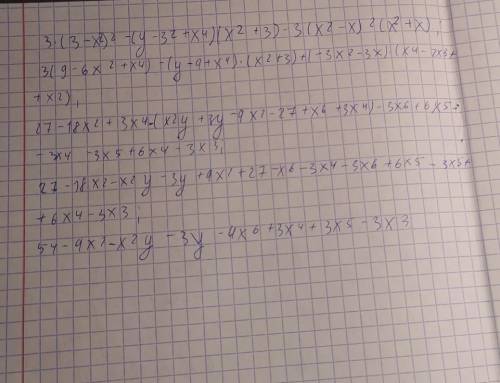 3·(3-x²)² -(y-3²+x⁴)(x²+3)-3(x²-x)²(x²+x);
3(9-6x²+x⁴)-(y-9+x⁴)·(x²+3)+(-3x²-3x)(x⁴-2x³+
+x²);
27-18x²+3x⁴-(x²y+3y-9x²-27+x⁶+3x⁴)-3x⁶+6x⁵-
-3x⁴-3x⁵+6x⁴-3x³;
27-18x²-x²y-3y+9x²+27-x⁶-3x⁴-3x⁶+6x⁵-3x⁵+
+6x⁴-3x³;
54-9x²-x²y-3y-4x⁶+3x⁴+3x⁵-3x³